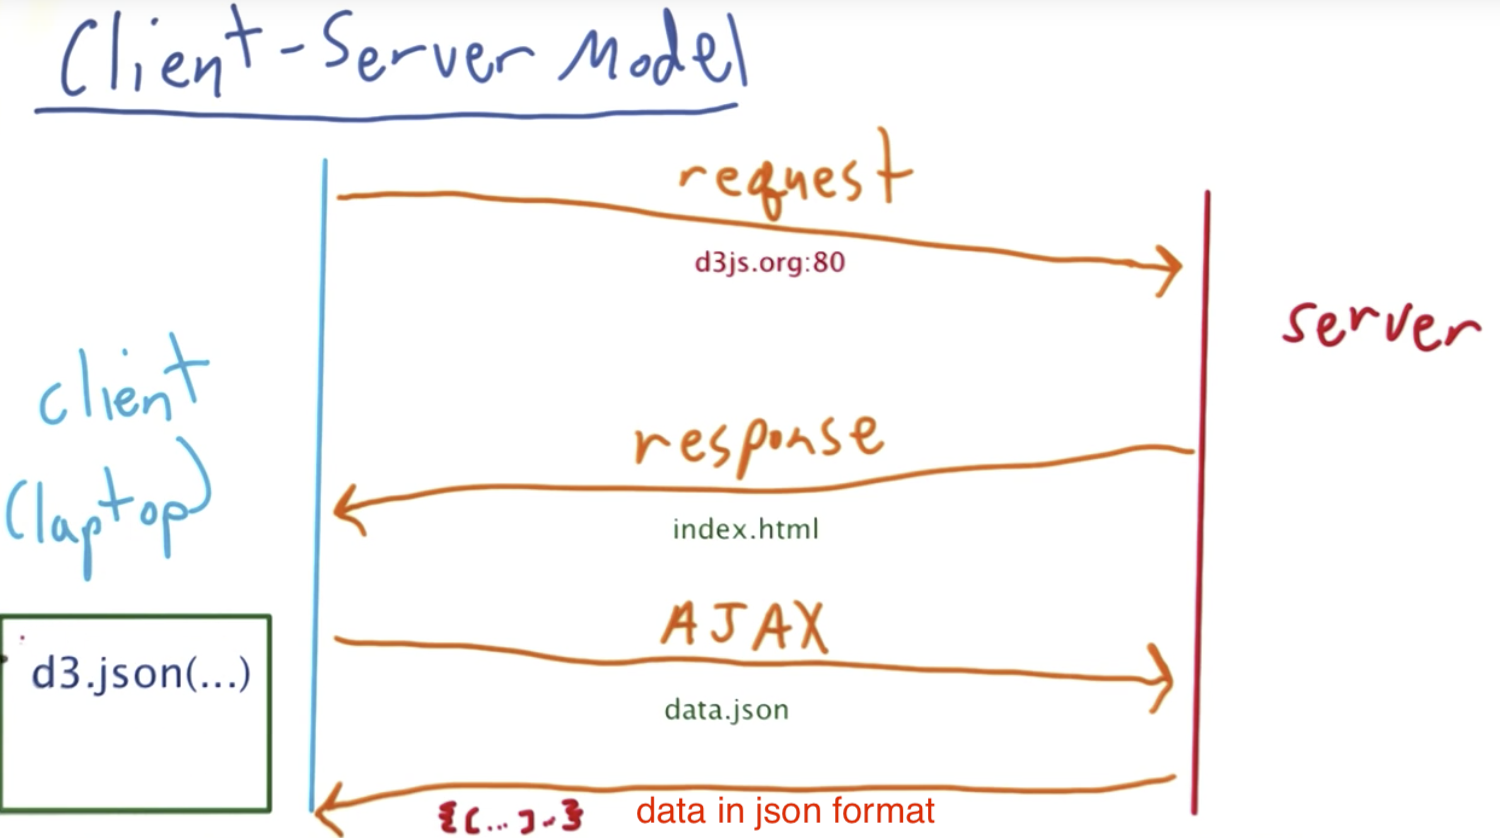 Client-Server Model
request
d3js.org:80
server
client
(laptop)
response
index.html
AJAX
d3.json(...)
data.json
{[...]...}
data in json format